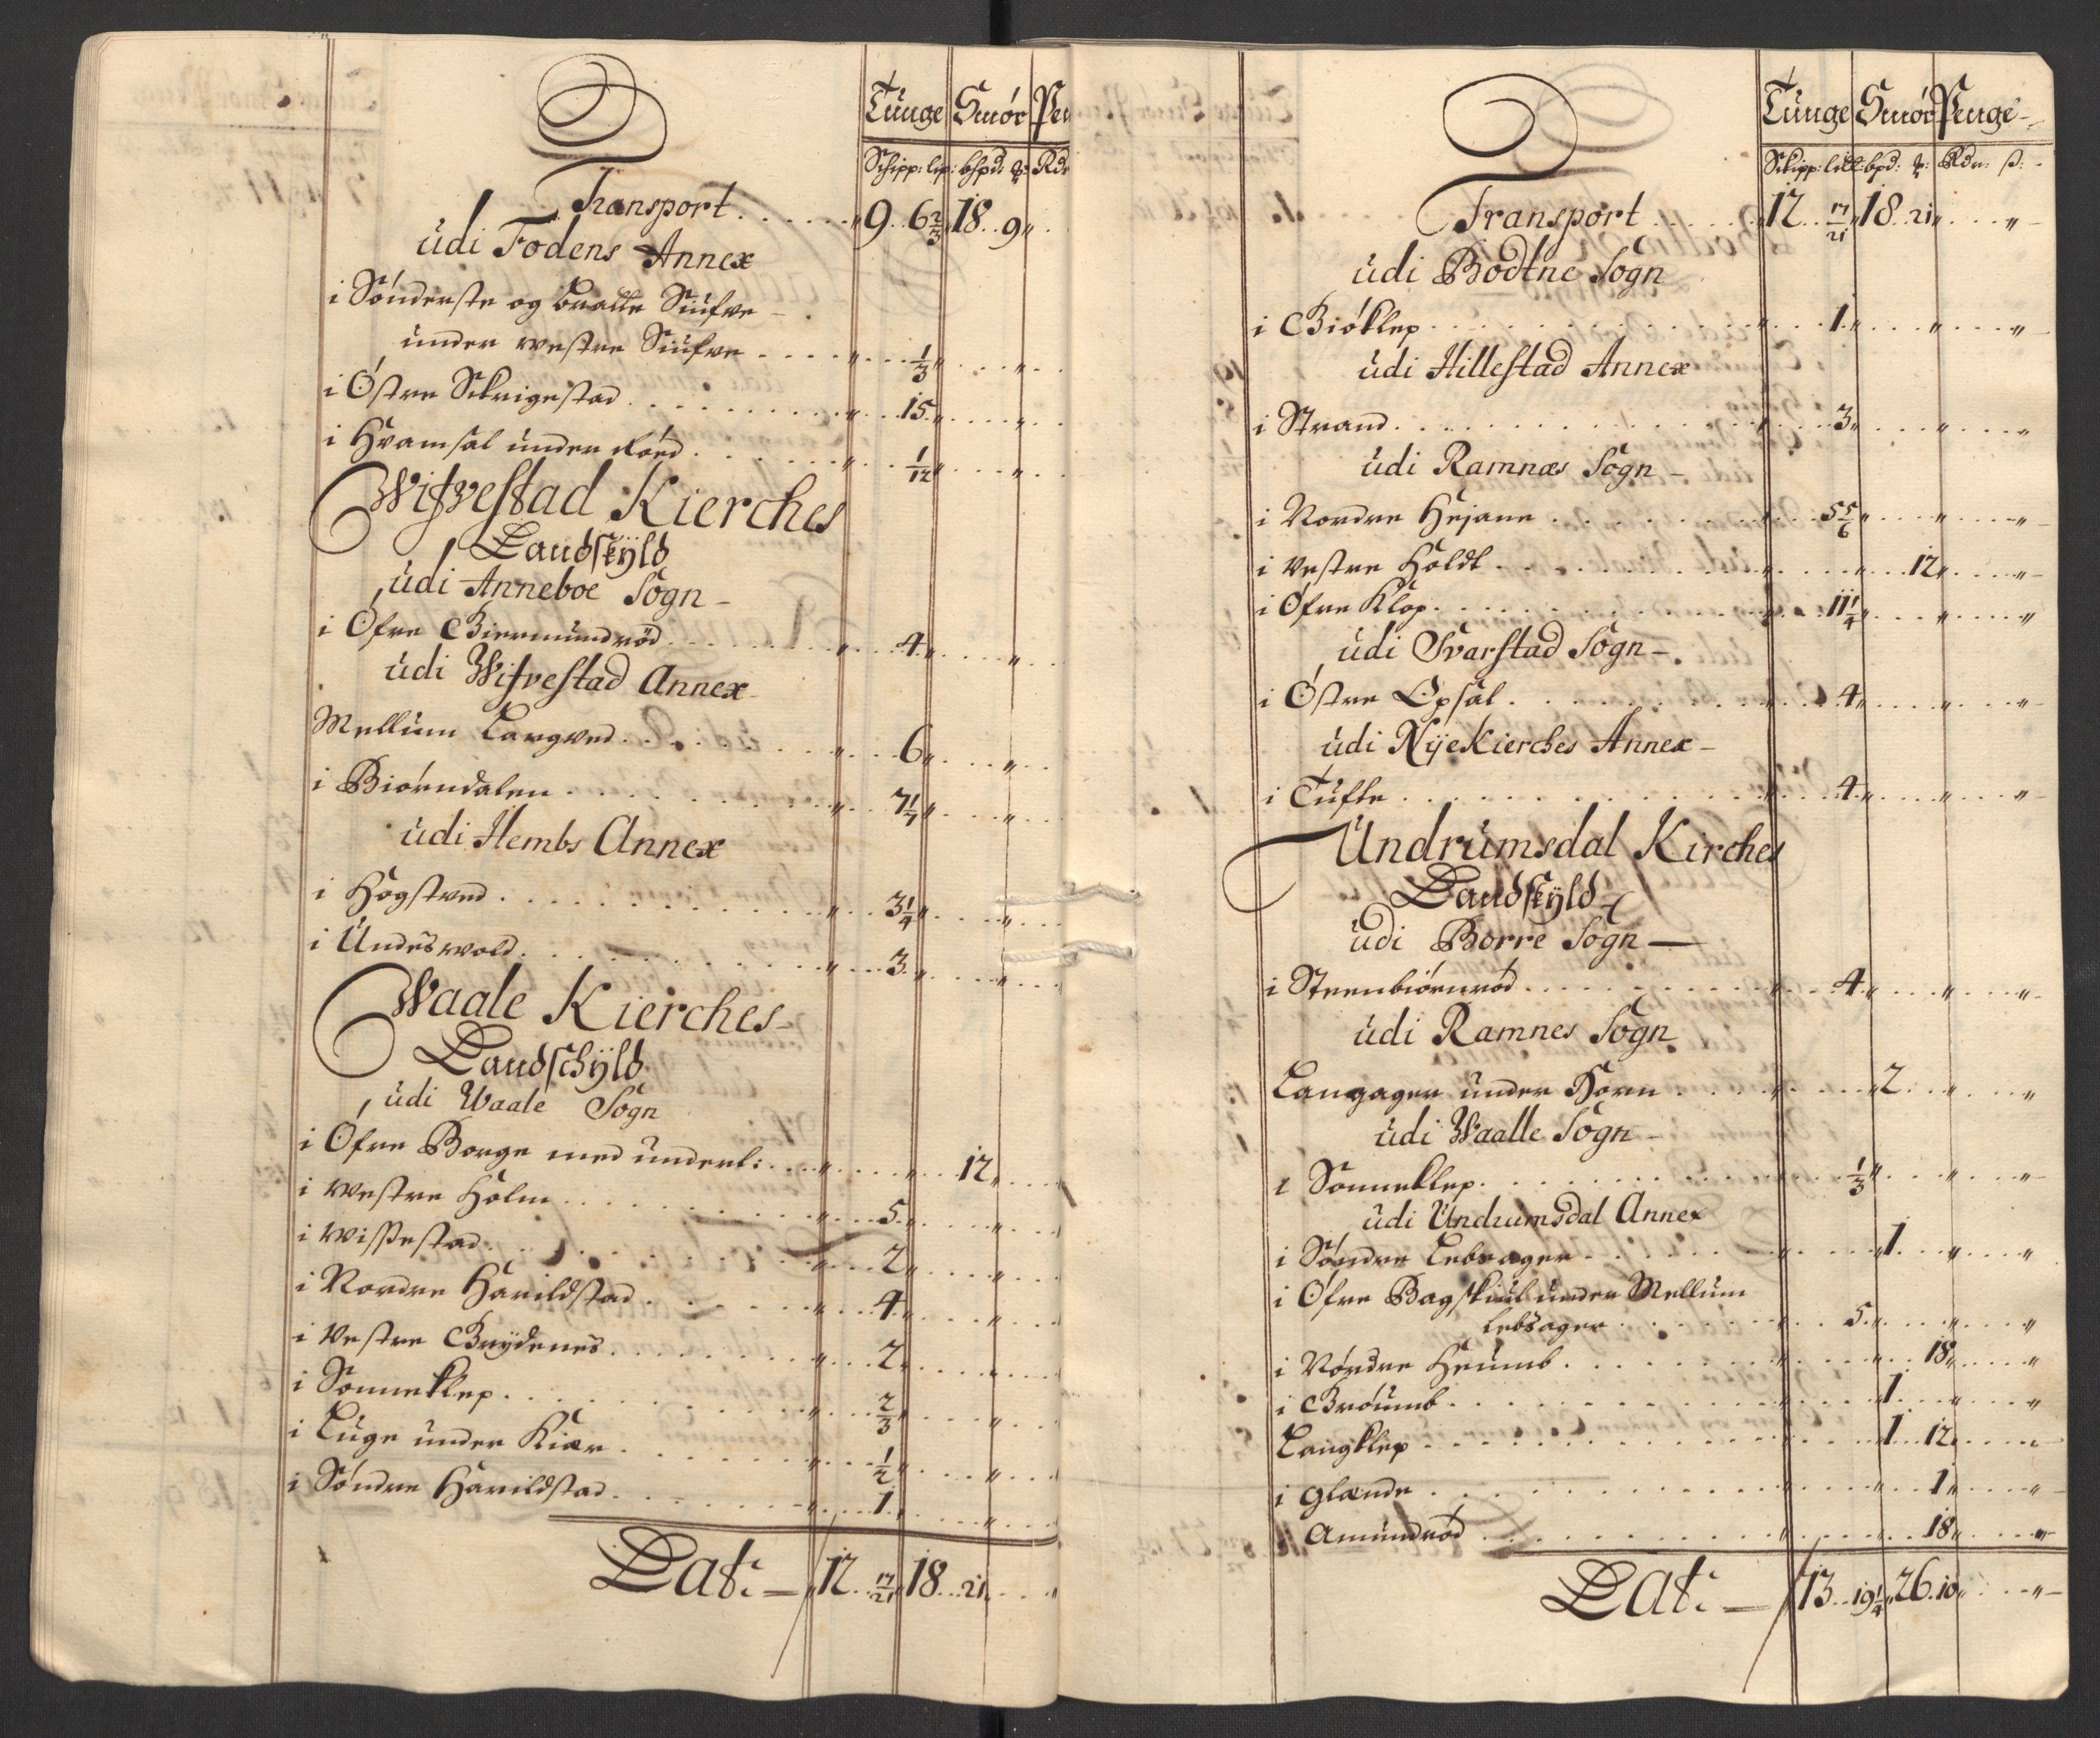 Tunge Smör Pen
Schipp: lip: bspd: ℔: Rdr
Transport . . . . . . " 9 . . 6 2/3 " 18 . . 9 " .
udi Fodens Annex
i Sönderste og bratte Siufve - .
under westre Siufve . . . . " . . . 1/3 " . . . . " . .
i Östre Skrigestad . . . . . . . . " . . 15 " . . . . " . .
i Hvamsal under Röed . . . . . . " . . 1/12 " . . . . " . .
Wifvestad Kierches
Landskÿld
udi Anneboe Sogn -
i Öfre Giermundröd . . . . . . . " . . . 4 " . . . . " . .
udi Wifvestad Annex
Mellum Langved . . . . . . . . " . . . 6 " . . . . " . .
i Biörndalen . . . . . . . . . . " . . . 7 1/7 " . . . . " . .
udi Hembs Annex
i Hogstved . . . . . . . . . . . " . . 3 1/4 " . . . . " . . .
i Undeswold . . . . . . . . . . " . . . 3 " . . . . " . . .
Waale Kierches
Landschÿld
udi Waale Sogn
i Öfre Borge med underl: . . . " . . . . . " . . 12 " . . .
i westre Holm . . . . . . . . . " . . . 5 " . . . . " . . .
i Wissestad . . . . . . . . . . " . . . 2 " . . . . " . . .
i Nordre Harildstad . . . . . . " . . . 4 " . . . . " . . .
i Vestre Brÿdenes . . . . . . . " . . . 2 " . . . . " . . .
i Sonneklep . . . . . . . . . . " . . . 2/3 " . . . . " . . .
i Luge under Kiær . . . . . . . " . . . 1/2 " . . . . " . . .
i Söndre Harildstad . . . . . . " . . . 1 " . . . . " . . .
Lat: — " 12 . . 17/21 " 18 . . 21 " . . . "
Tunge Smör Penge -
Skipp: lidl: bpd: ℔: Rdr: ß: -
Transport . . . . . " 12 . . 17/21 " 18 . . 21 " . . . " -
udi Bodtne Sogn
i Biöklep . . . . . . . . . . . . " . . . 1 " . . . " . . . " -
udi Hillestad Annex
i Strand . . . . . . . . . . . . " . . . 3 " . . . " . . . "
udi Ramnæs Sogn -
i Nordre Hejane . . . . . . . . " . . 5 5/6 " . . . " . . . " -
i vestre Holdt . . . . . . . . . " . . . . " . . 12 " . . . " -
i Öfre Klop . . . . . . . . . . " . . 11 1/4 " . . . " . . . "
udi Svarstad Sogn -
i Östre Opsal . . . . . . . . . " . . . 4 " . . . " . . . " -
udi NÿeKierches Annex -
i Tufte . . . . . . . . . . . . " . . . 4 " . . . " . . . " -
Undrumsdal Kirches
Landskÿld
udi Borre Sogn —
i Steenbiörnröd . . . . . . . . " . . . 4 " . . . " . . . " -
udi Ramnes Sogn
Langager under Horn . . . . . " . . . . " 2 . . " . . . "
udi Waalle Sogn -
i Sonneklep . . . . . . . . . . " . . . 1/3 " . . . " . . . " -
udi Undrumsdal Annex
i Söndre Lebsager . . . . . . . " . . . . " 1 . . " . . . "
i Öfre Bagskiul under Mellum
Lebsager . . . . . . " . . . 5 " . . . " . . . "
i Nördre Heumb . . . . . . . . " . . . . " . . 18 " . . . "
i Bröumb . . . . . . . . . . . " . . . . " 1 . . " . . . "
Langklep . . . . . . . . . . . " . . . . " 1 . . 12 " . . . " -
i Glænde . . . . . . . . . . . " . . . . " . . 1 " . . . " -
i Amundröd . . . . . . . . . . " . . . . " . . 18 " . . . " -
Lat: — " 13 . . 19 1/4 " 26 . 10 " . . . " —